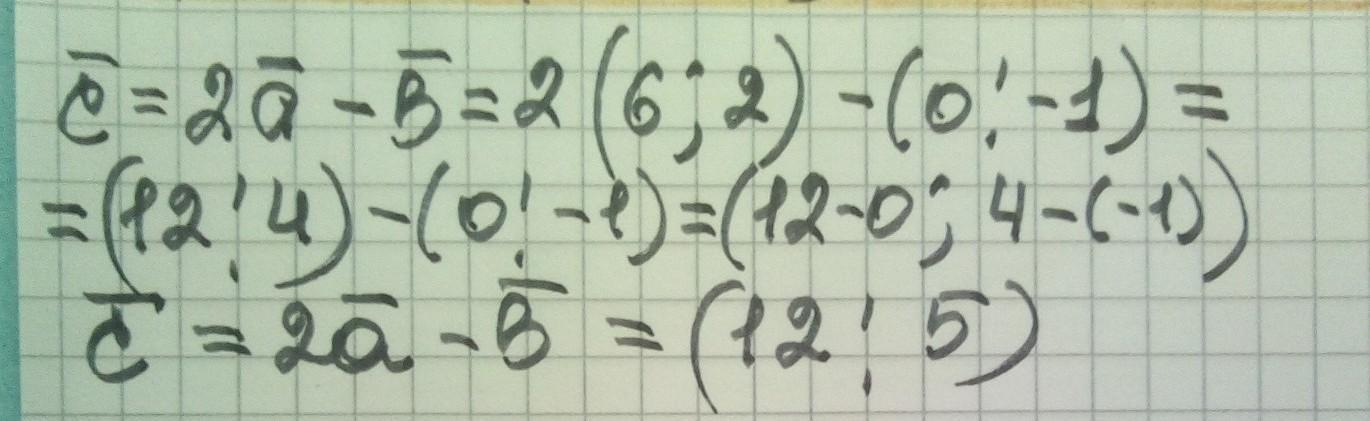 c̅ = 2a̅ - B̅ = 2 (6; 2) - (0; -1) =
= (12; 4) - (0; -1) = (12-0; 4-(-1))
c̅ = 2a̅ - B̅ = (12; 5)